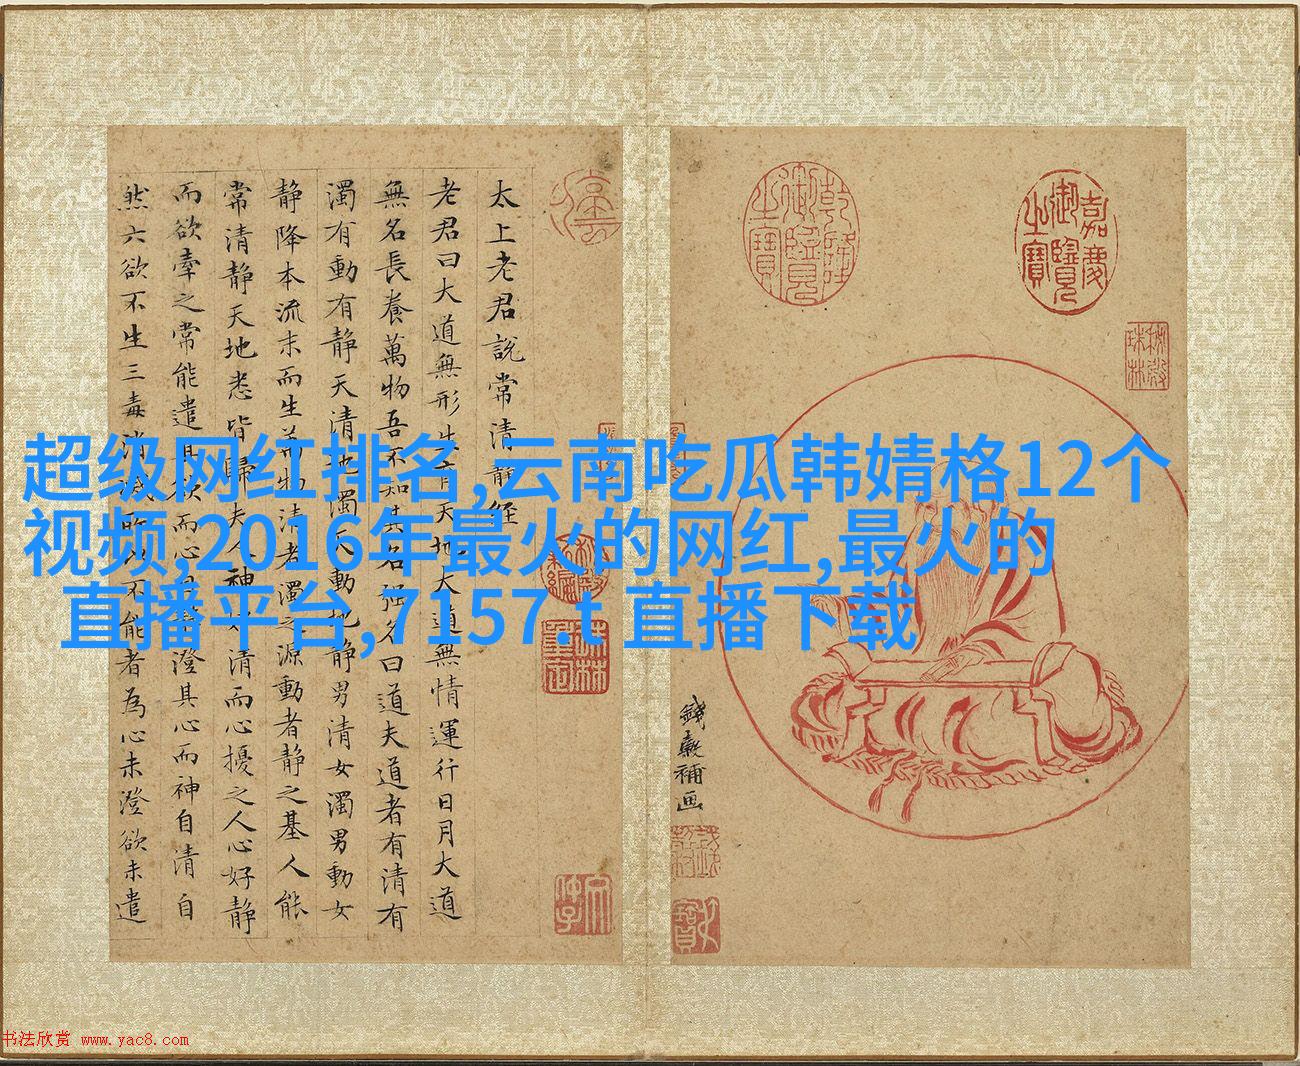 超级网红排名,云南吃瓜韩婧格12个
视频,2016年最火的网红,最火的
直播平台,7157.t 直播下载
嘉慶御覽之寶
乾隆御覽之寶
秘殿珠林
錢穀補画
太上老君說常清靜經
老君曰大道無形生育天地大道無情運行日月大道
無名長養萬物吾不知其名强名曰道夫道者有清有
濁有動有静天清地濁天動地静男清女濁男動女
静降本流末而生萬物清者濁之源動者静之基人能
常清静天地悉皆歸夫人神好清而心擾之人心好静
而欲牽之常能遣其欲而心自静澄其心而神自清自
然六欲不生三毒消滅所以不能者為心未澄欲未遣
书法欣赏 www.yac8.com